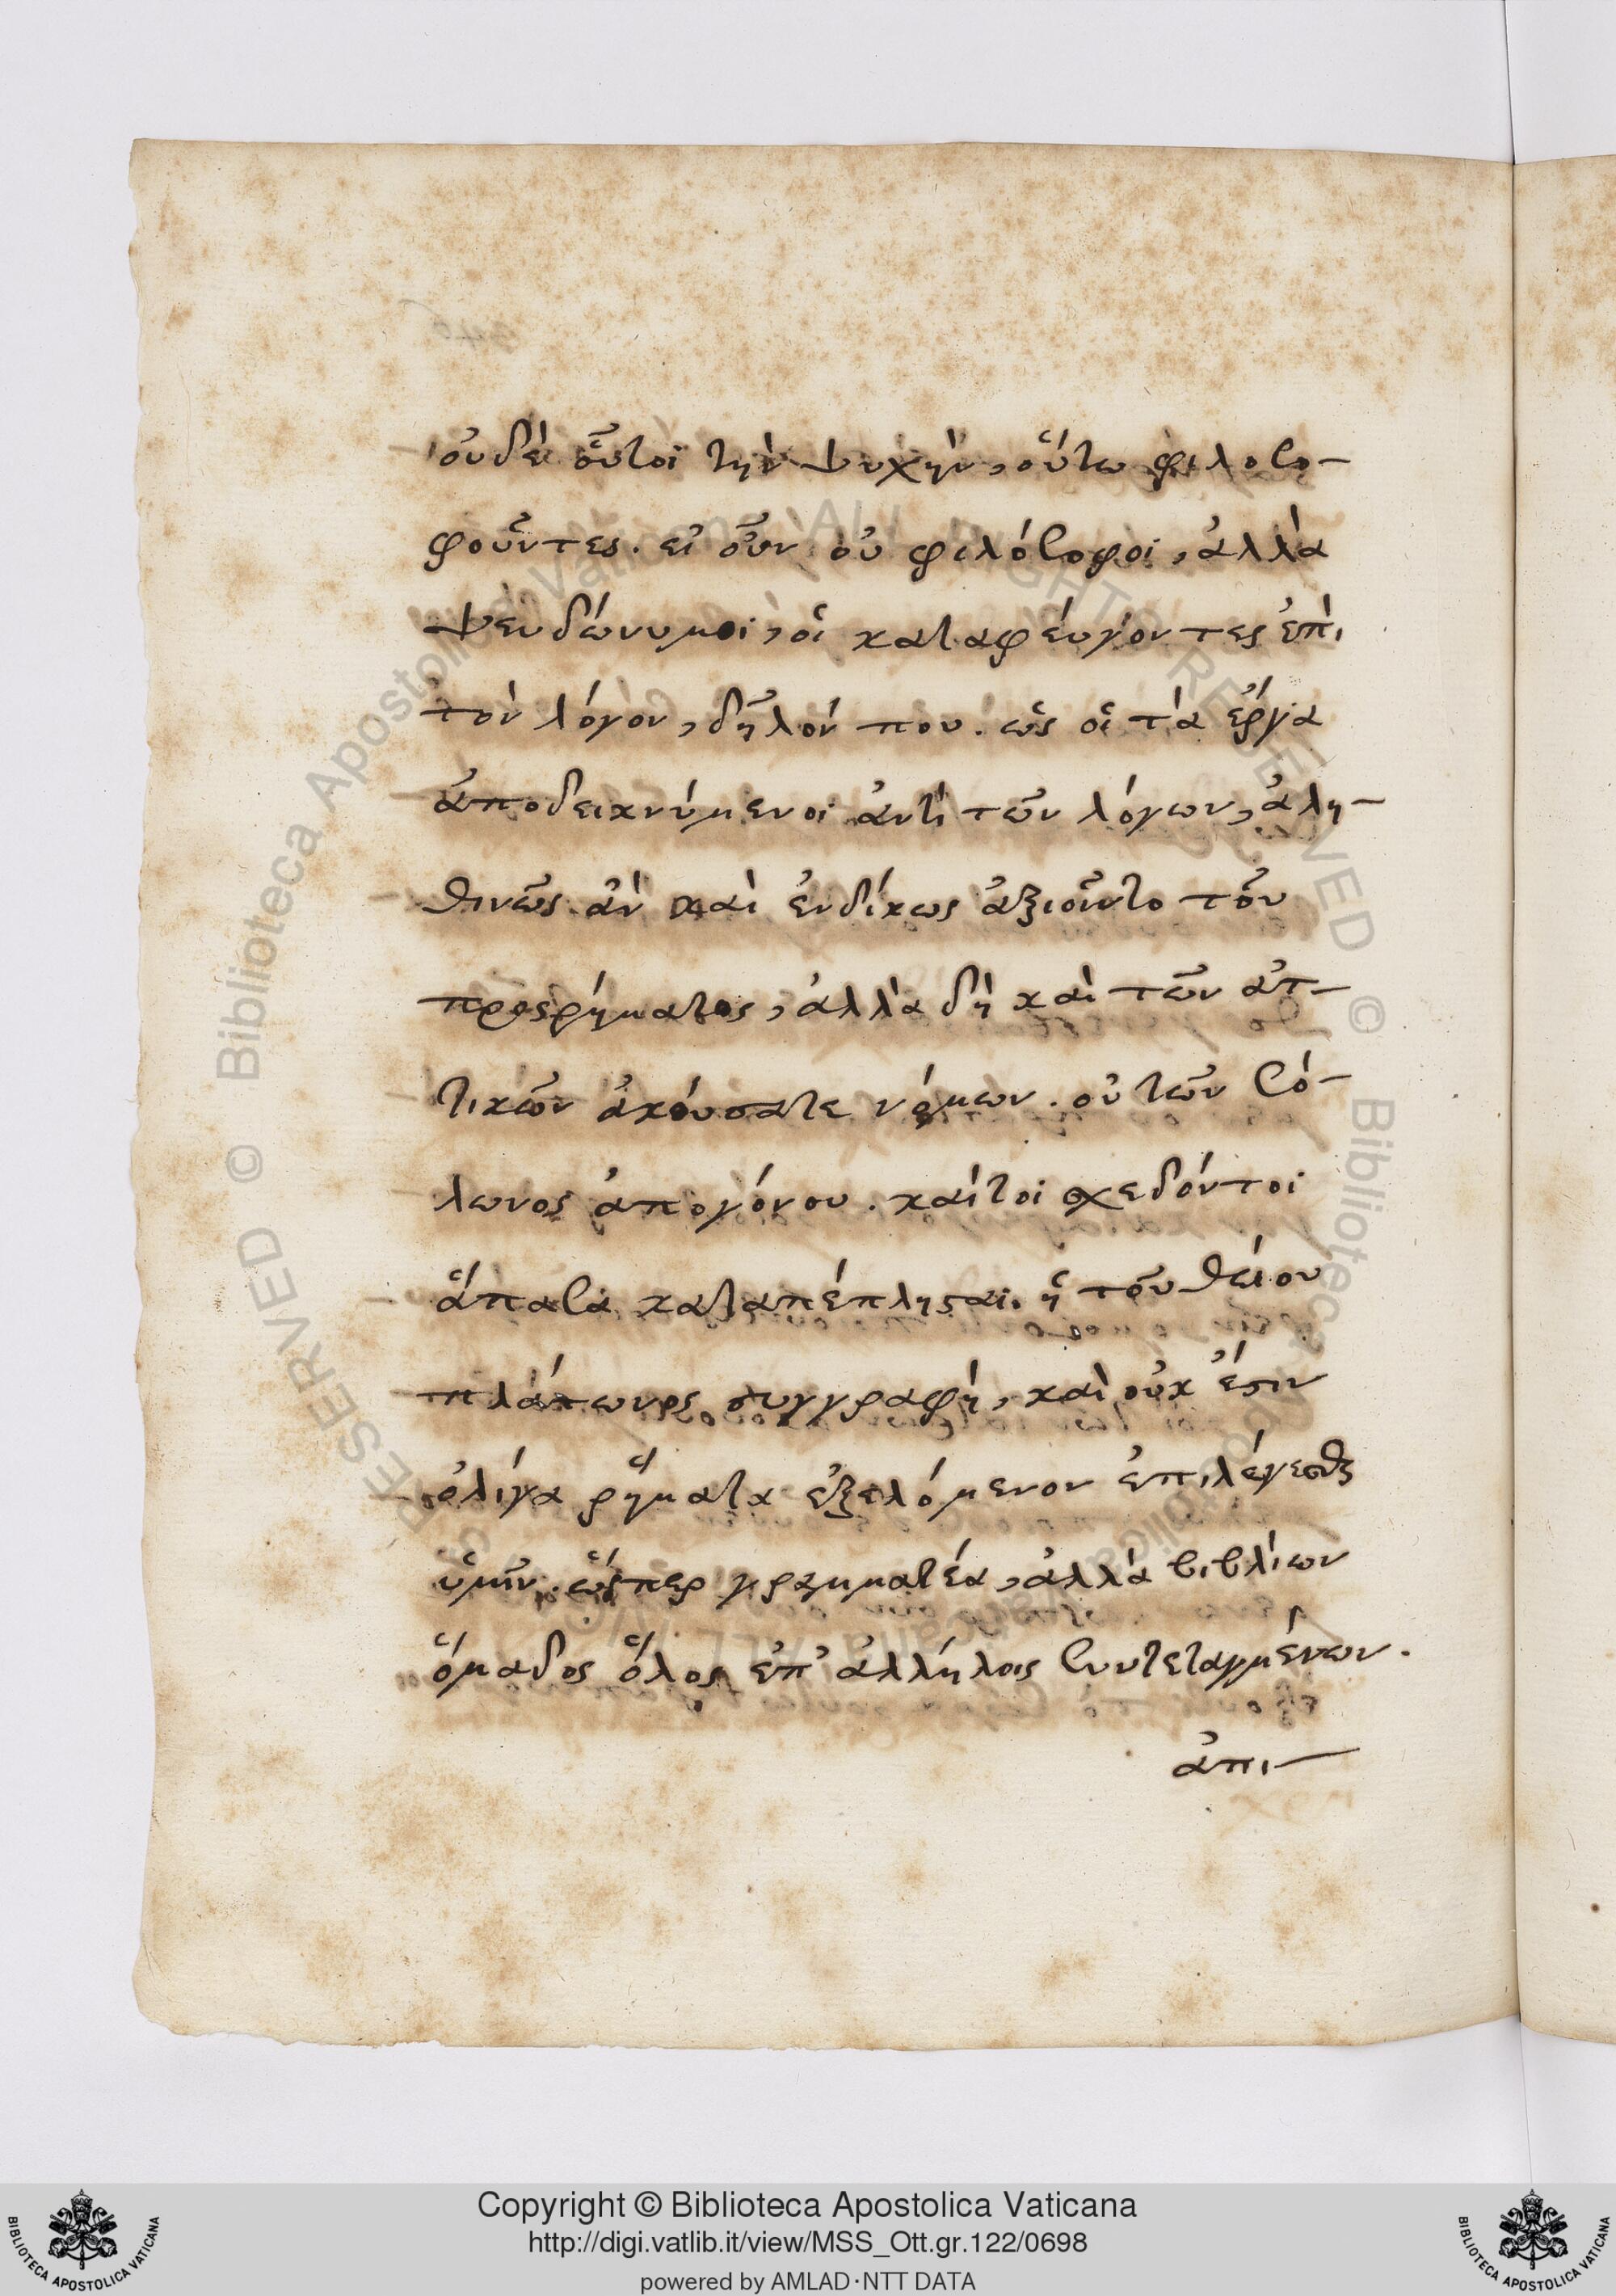 οὐδὲ οὗτοι τὴν ψυχὴν, οὕτω φιλοσο-
φοῦντες. εἰ οὖν οὐ φιλόσοφοι, ἀλλὰ
ψευδώνυμοι, οἱ καταφέυγοντες ἐπὶ
τὸν λόγον, δῆλόν που. ὡς οἱ τὰ ἔργα
ἀποδεικνύμενοι ἀντὶ τῶν λόγων, ἀλη-
θινῶς ἂν καὶ ἐνδίκως ἀξιοῖντο τοῦ
προςρήματος, ἀλλὰ δὴ καὶ τῶν ἀτ-
τικῶν ἀκόυσατε νόμων. οὐ τῶν Σό-
λωνος ἀπογόνου. καίτοι σχεδόντοι
ἅπασα καταπέπλησται. ἡ τοῦ θείου
πλάτωνος συγγραφὴ, καὶ οὐκ ἔστιν
ὀλίγα ῥήματα ἐξελόμενον ἐπιλέγεσθαι
ὑμῖν. ὥςπερ γραμματέα, ἀλλὰ βιβλίων
ὅμαδος ὅλος ἐπ' ἀλλήλοις συντεταγμένων.
ἀπι-
© Biblioteca Apostolica Vaticana ALL RIGHTS RESERVED © Biblioteca Apostolica Vaticana ALL RIGHTS RESERVED
Copyright © Biblioteca Apostolica Vaticana
http://digi.vatlib.it/view/MSS_Ott.gr.122/0698
powered by AMLAD·NTT DATA
BIBLIOTECA APOSTOLICA VATICANA
BIBLIOTECA APOSTOLICA VATICANA